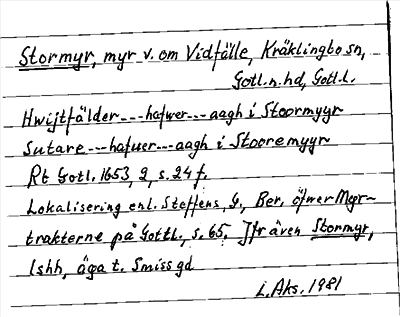 Stormyr, myr v. om Vidfälle, Kräklingbo sn,
Gotl. n. hd, Gotl. l.
Hwijtfälder --- hafwer --- aagh i Stoormyyr
Sutare --- hafuer --- aagh i Stooremyyr
Rt Gotl. 1653, 2, s. 24 f.
Lokalisering enl. Steffens, G., Ber. öfwer Myr-
trakterne på Gottl., s. 65. Jfr även Stormyr,
lshh, äga t. Smiss gd
L. Aks. 1981